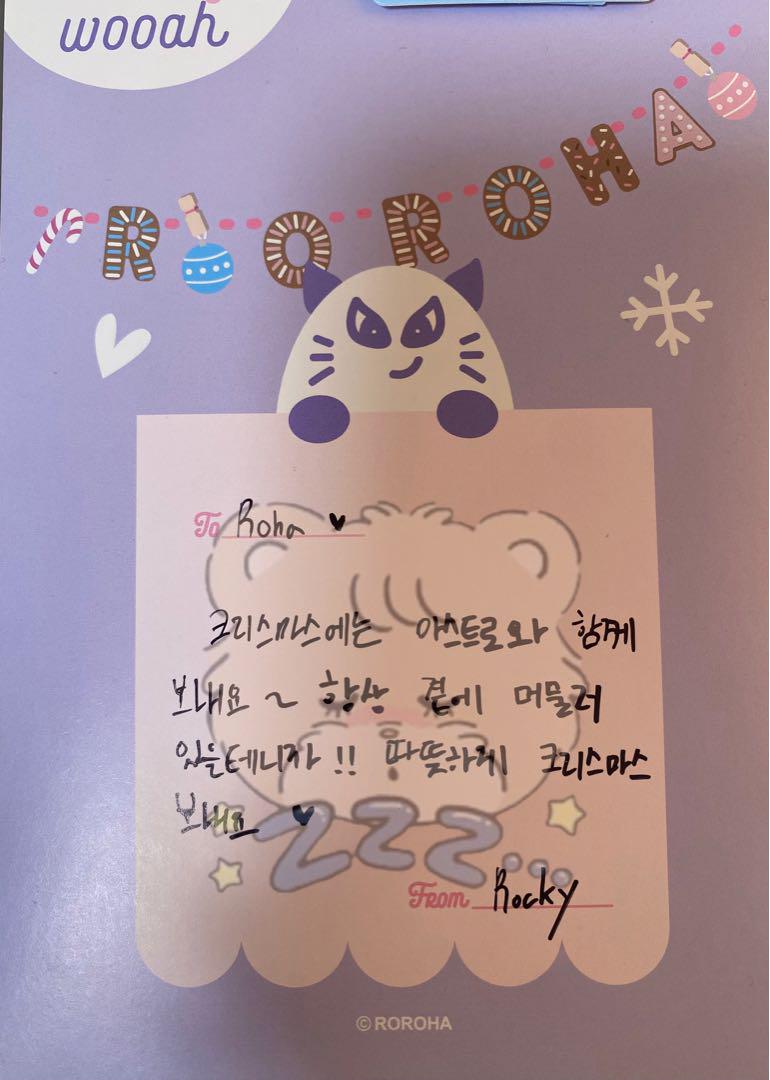 wooah
ROROHA
To Roha ♥
크리스마스에는 아스트로와 함께
보내요 ~ 항상 곁에 머물러
있을테니까 !! 따뜻하게 크리스마스
보내요 ♥
ZZZ...
From Rocky
© ROROHA